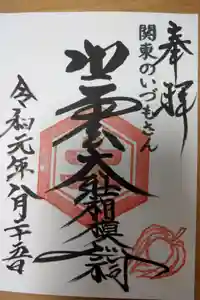 奉拝
関東のいづもさん
出雲大社相模分祠
令和元年八月十五日